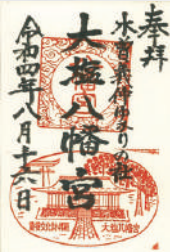 奉拝
木曽義仲ゆかりの社
大塩八幡宮
令和四年八月十六日
大塩八幡宮